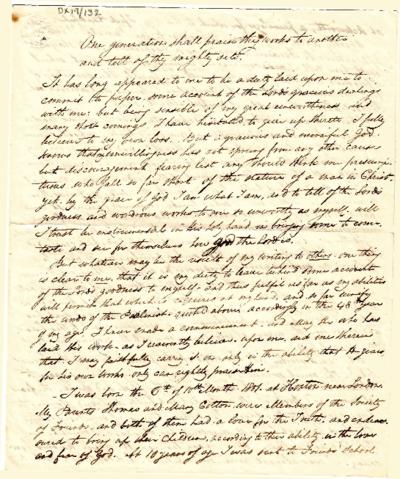 DX17/132
One generation shall praise thy works to another
and tell of thy mighty acts.
It has long appeared to me to be a duty laid upon me to
commit to paper some account of the Lord's gracious dealings
with me: but being sensible of my great unworthiness and
many short comings, I have hesitated to give up thereto. I fully
believe to my own loss. But a gracious and merciful God
knows that unwillingness has not sprung from any other cause
but discouragement, fearing lest any should think me presump
tuous who fall so far short of the stature of a man in Christ
yet, by the grace of God I am what I am, and to tell of the Lord's
goodness and wondrous works to one so unworthy as myself, will
I trust be instrumental in His holy hand, in bringing some to come
taste and see for themselves how good the Lord is.
But whatever may be the result of my writing to others, one thing
is clear to me, that it is my duty to leave behind some account
of the Lord's goodness to myself. And thus fulfil as far as my abilities
will permit that which is required at my hand, and so far carry out
the words of the Psalmist quoted above, accordingly in the 48 year
of my age I have made a commencement. And may He who has
laid this work, as I reverently believe, upon me, and one wherein
that I may faithfully carry it on, rely in the ability that He gives
for his own works only can rightly praise Him.
I was born the 6th of 10th Month 1801 at Hoxton near London.
My Parents Thomas and Mary Cotton were Members of the Society
of Friends, and both of them had a love for the Truth, and endeav
oured to bring up their Children, according to their ability in the love
and fear of God. At 10 years of age I was sent to Friends School